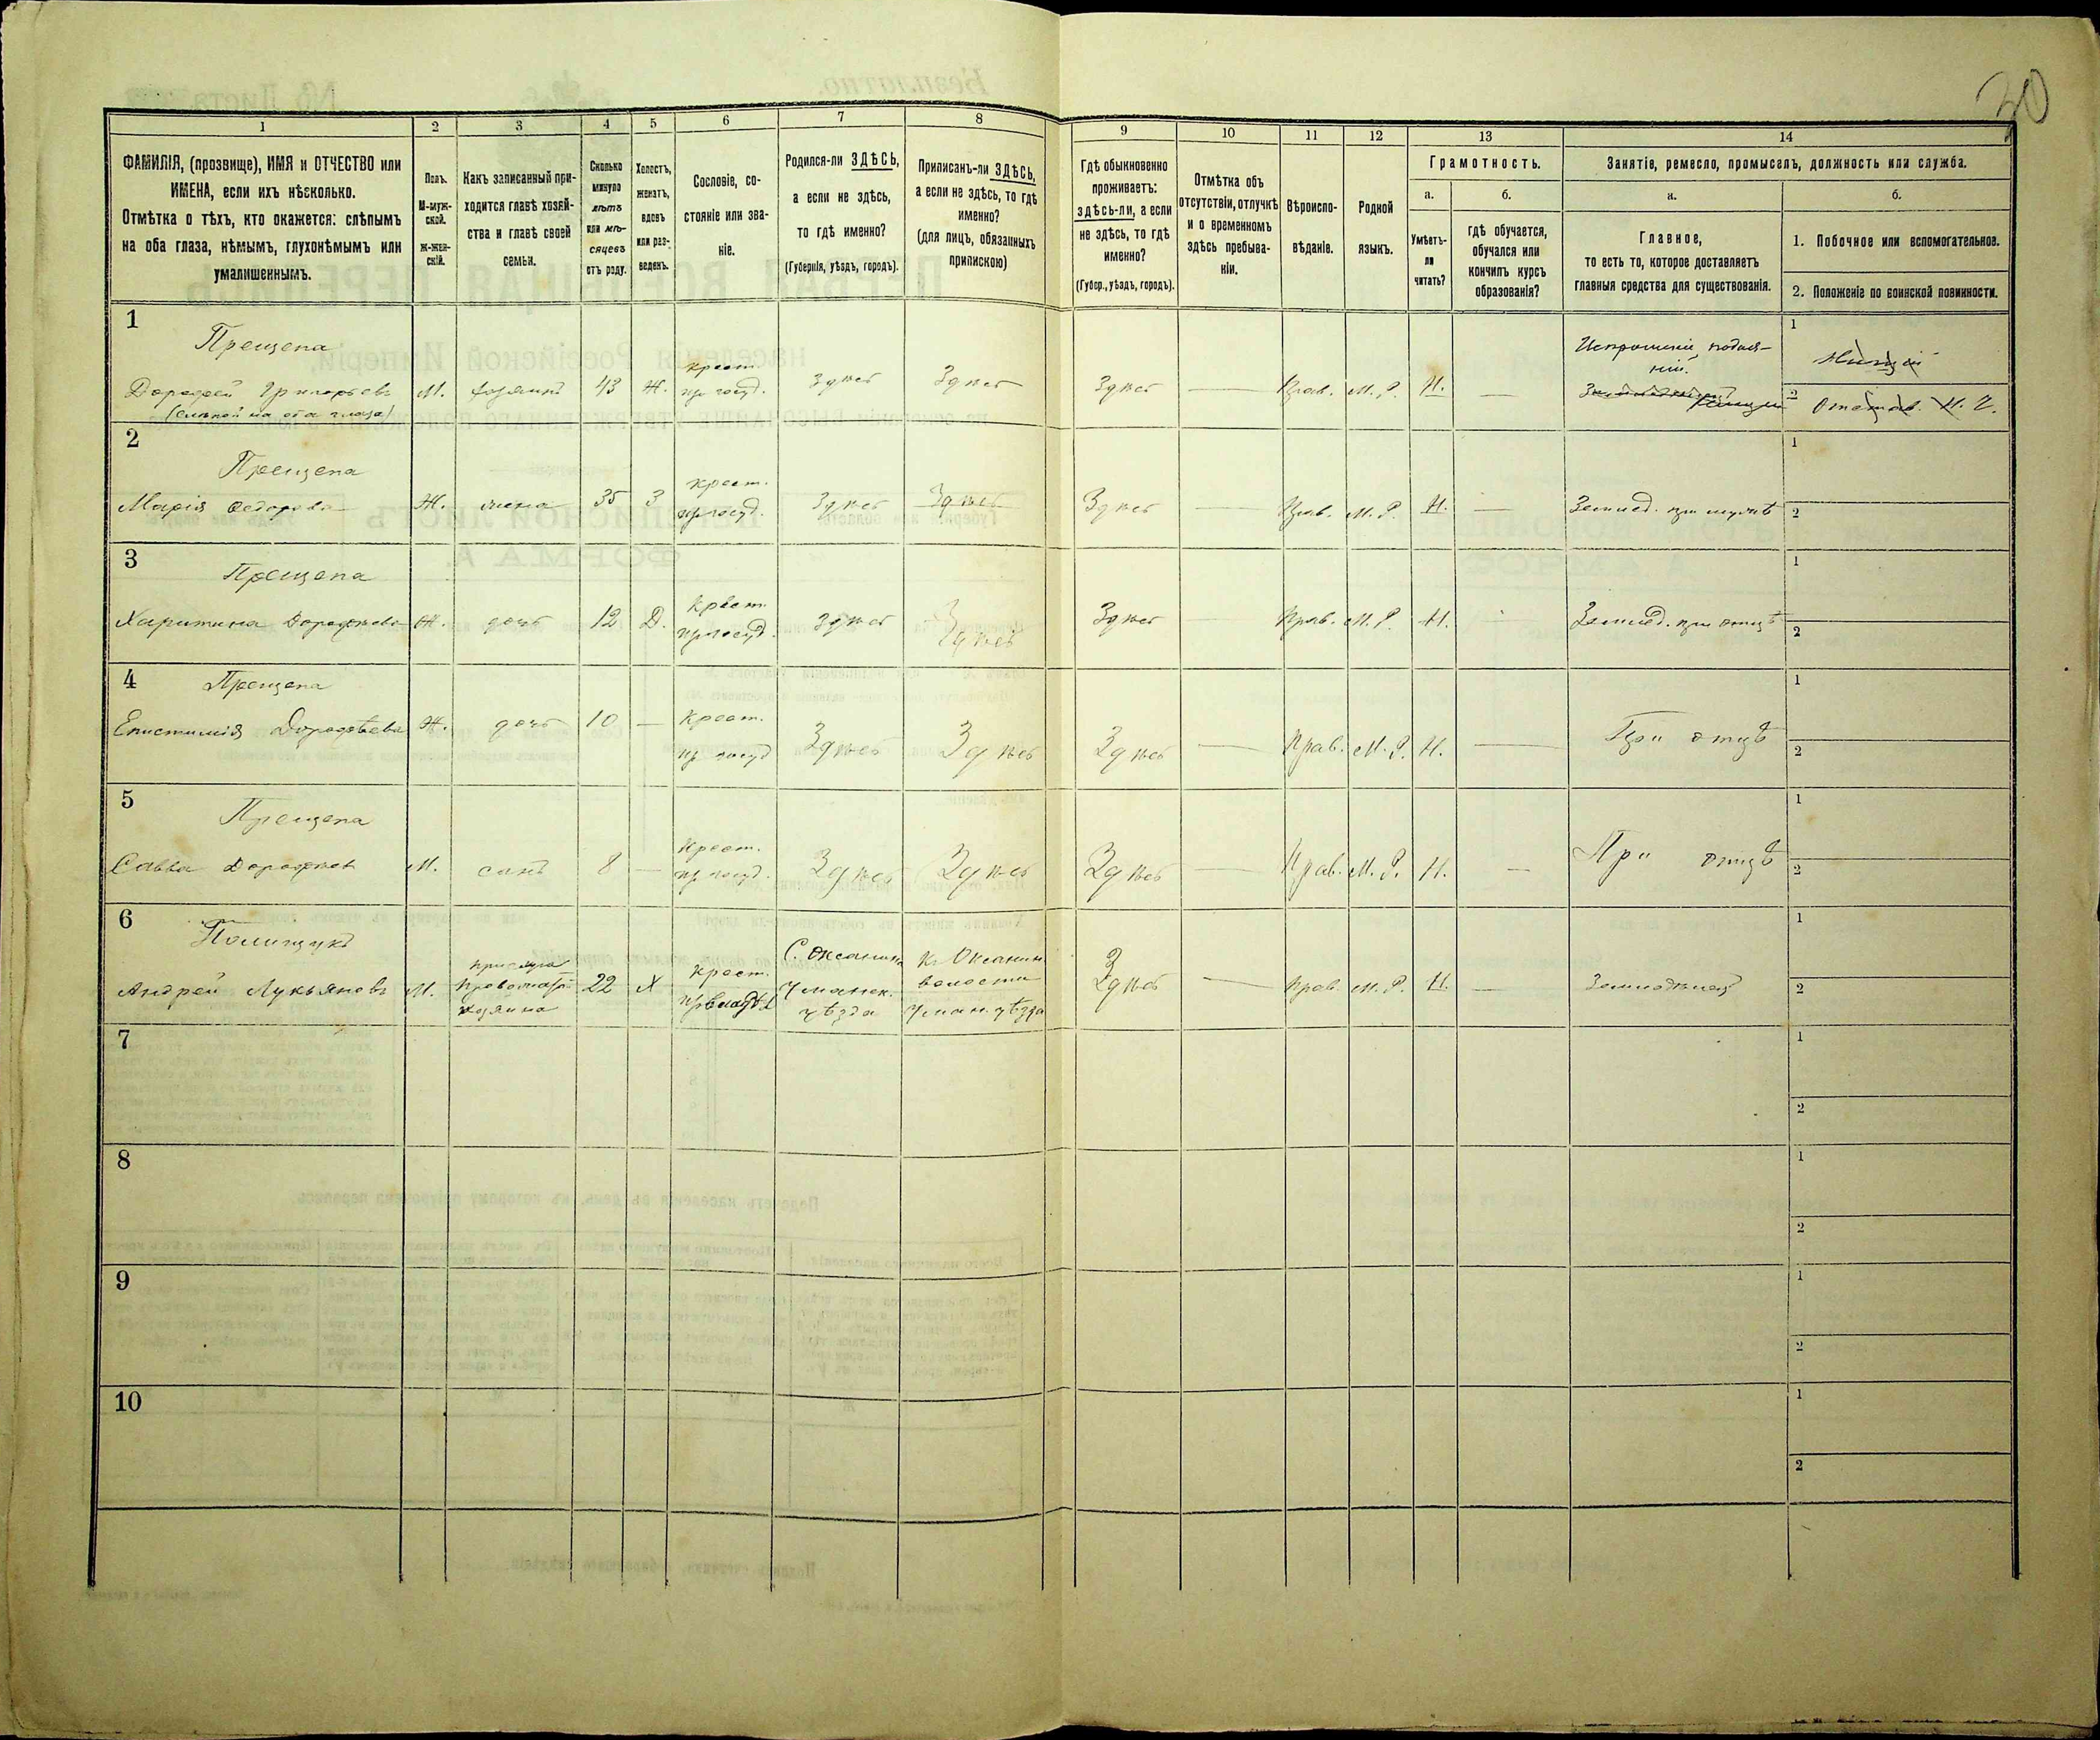 30
1 2 3 4 5 6 7 8 9 10 11 12 13 14
ФАМИЛІЯ, (прозвище), ИМЯ и ОТЧЕСТВО или
ИМЕНА, если ихъ нѣсколько.
Отмѣтка о тѣхъ, кто окажется: слѣпымъ
на оба глаза, нѣмымъ, глухонѣмымъ или
умалишеннымъ.
Полъ.
М-муж-
ской.
Ж-жен-
скій.
Какъ записанный при-
ходится главѣ хозяй-
ства и главѣ своей
семьи.
Сколько
минуло
лѣтъ
или мѣ-
сяцевъ
отъ роду.
Холостъ,
женатъ,
вдовъ
или раз-
веденъ.
Сословіе, со-
стояніе или зва-
ніе.
Родился-ли ЗДѢСЬ,
а если не здѣсь,
то гдѣ именно?
(Губернія, уѣздъ, городъ).
Приписанъ-ли ЗДѢСЬ,
а если не здѣсь, то гдѣ
именно?
(для лицъ, обязанныхъ
припискою)
Гдѣ обыкновенно
проживаетъ:
здѣсь-ли, а если
не здѣсь, то гдѣ
именно?
(Губер., уѣздъ, городъ).
Отмѣтка объ
отсутствіи, отлучкѣ
и о временномъ
здѣсь пребыва-
ніи.
Вѣроиспо-
вѣданіе.
Родной
языкъ.
Грамотность.
а.
Умѣетъ-
ли
читать?
б.
гдѣ обучается,
обучался или
кончилъ курсъ
образованія?
Занятіе, ремесло, промыселъ, должность или служба.
а.
Главное,
то есть то, которое доставляетъ
главныя средства для существованія.
б.
1. Побочное или вспомогательное.
2. Положеніе по воинской повинности.
1
Прещепа
Дорофей Григорьевъ
(слѣпой на оба глаза)
М. хозяинъ 43 Ж. крест. из госуд. Здѣсь Здѣсь Здѣсь — Прав. М. Р. Н. —
Испрошеніе подая-
ній.
1 Нищій
2 Отстав. Н. Ч.
2
Прещепа
Марія Федорова Ж. жена 35 З крест. из госуд. Здѣсь Здѣсь Здѣсь — Прав. М. Р. Н. — Землед. при мужѣ
1
2
3
Прещепа
Харитина Дорофѣева Ж. дочь 12 Д. Крест. из госуд. Здѣсь Здѣсь Здѣсь — Прав. М. Р. Н. Землед. при отцѣ
1
2
4
Прещепа
Епистимія Дорофѣева Ж. дочь 10 — Крест. из госуд Здѣсь Здѣсь Здѣсь — Прав. М. Р. Н. — При отцѣ
1
2
5
Прещепа
Савва Дорофѣев М. сынъ 8 — Крест. из госуд. Здѣсь Здѣсь Здѣсь — Прав. М. Р. Н. — При отцѣ
1
2
6
Полищукъ
Андрей Лукьяновъ М. хозяина 22 Х крест. Уманск. уѣзда волости Уман. уѣзда Здѣсь — Прав. М. Р. Н. — Земледѣлецъ
1
2
7
1
2
8
1
2
9
1
2
10
1
2